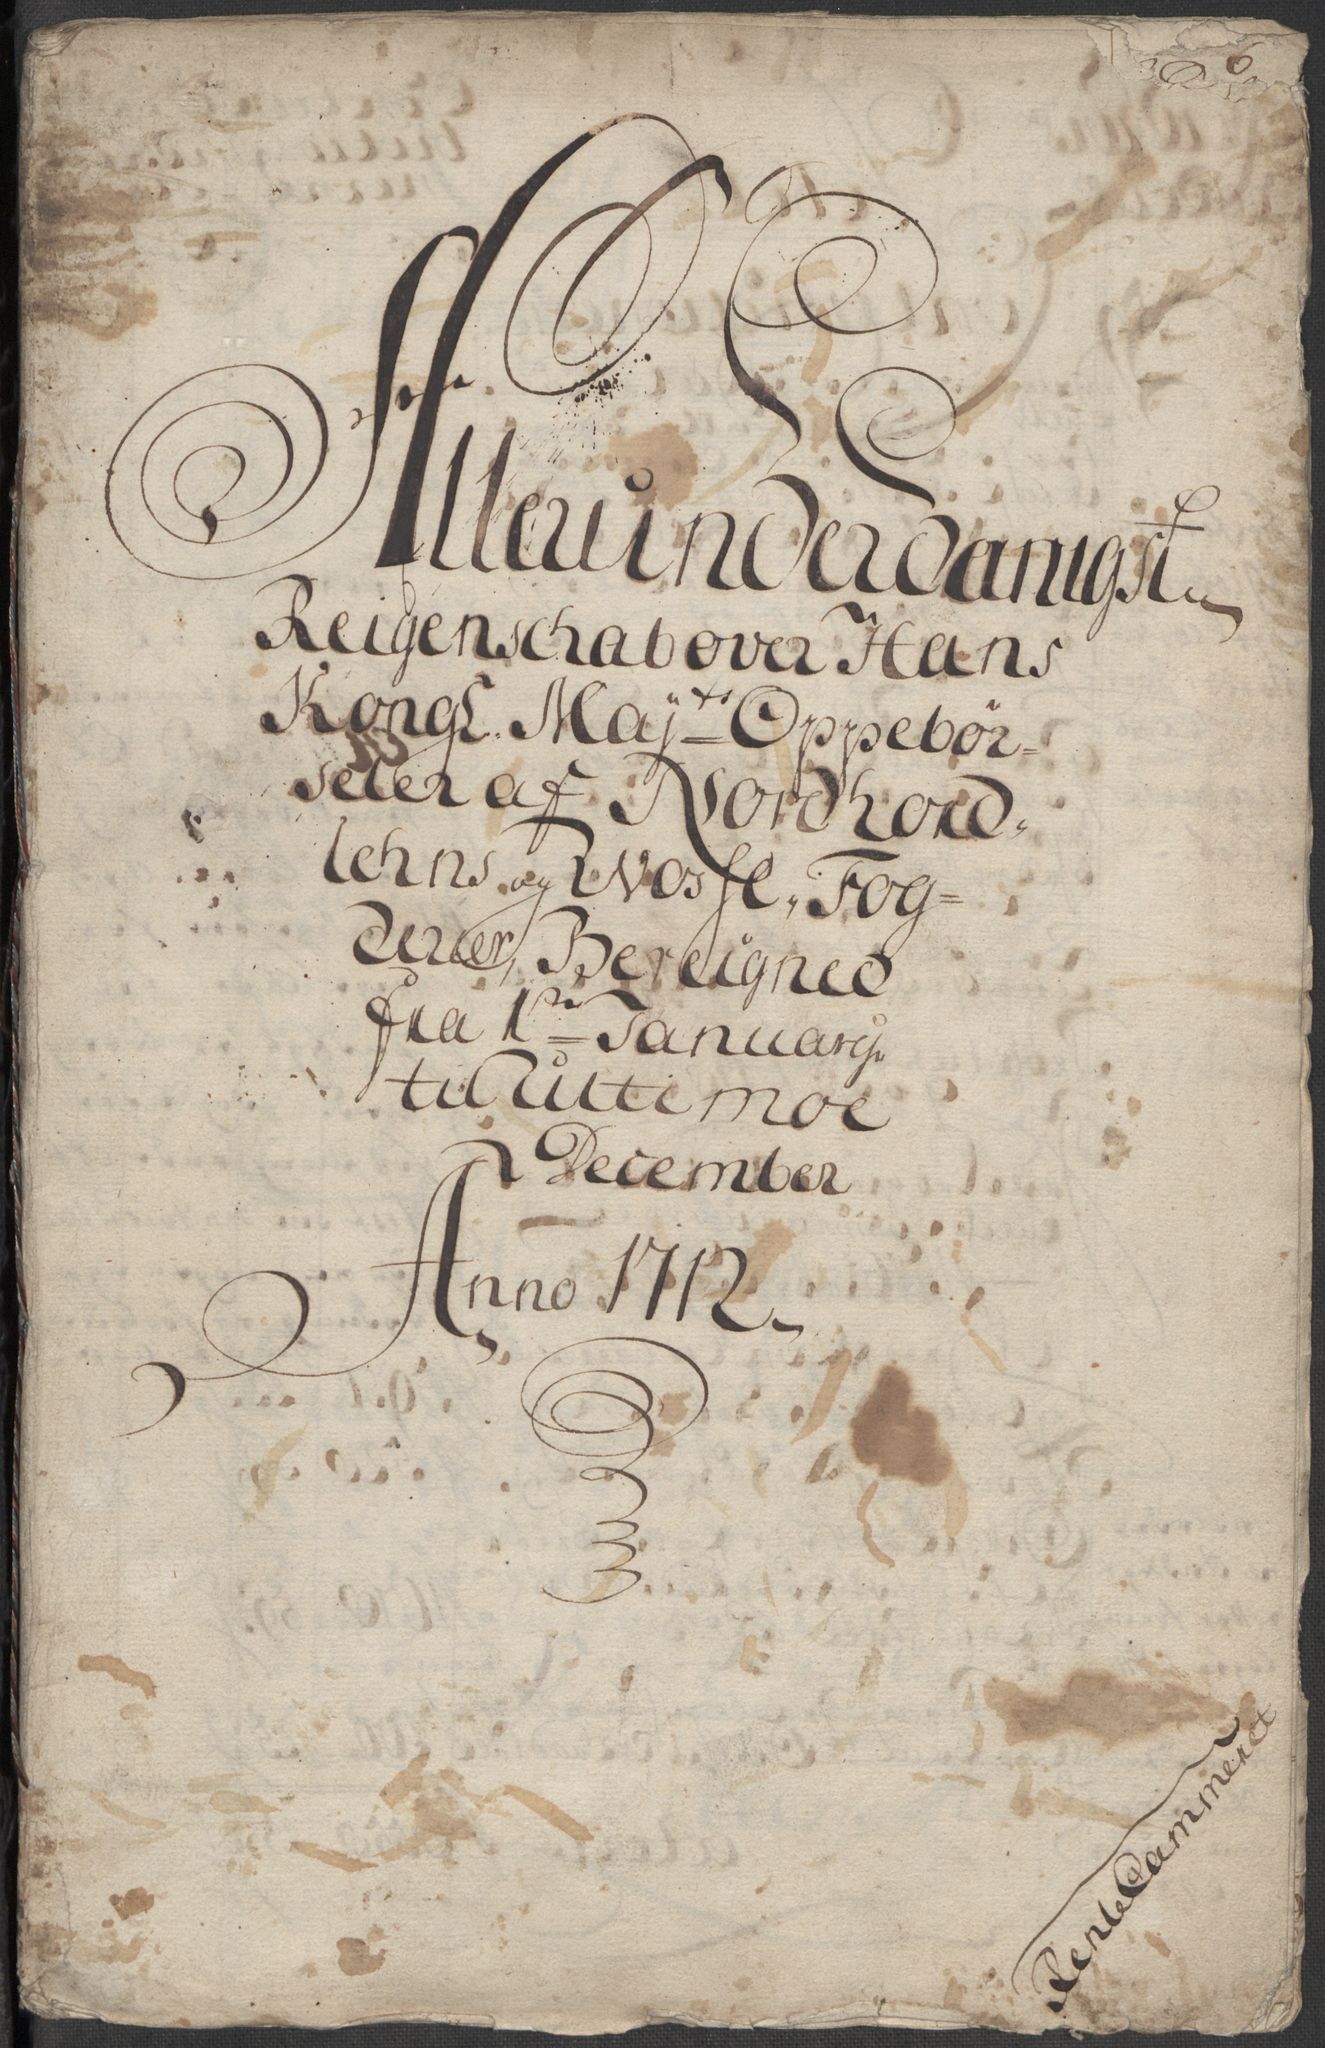 6
Allerunderdanigst
Reigenschab over Hans
Kongl. May.ts Oppebör=
seler af Nordhord,
lehns og Wosse, Fog=
derier, Bereigned
fra 1.ste January
til Ultimoe
December
Anno 1712
RenteCammeret